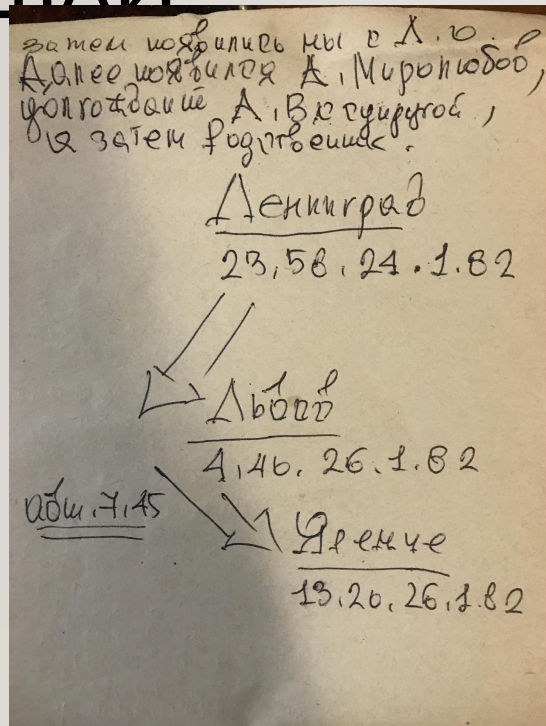 затем появились мы с Л.Ю.
Далее появился А. Миролюбов,
А. В с супругой,
а затем родственник.
Ленинград
23,58. 24.1.82
Львов
4,40. 26.1.82
авт. 7,45
Яремче
13.20. 26.1.82